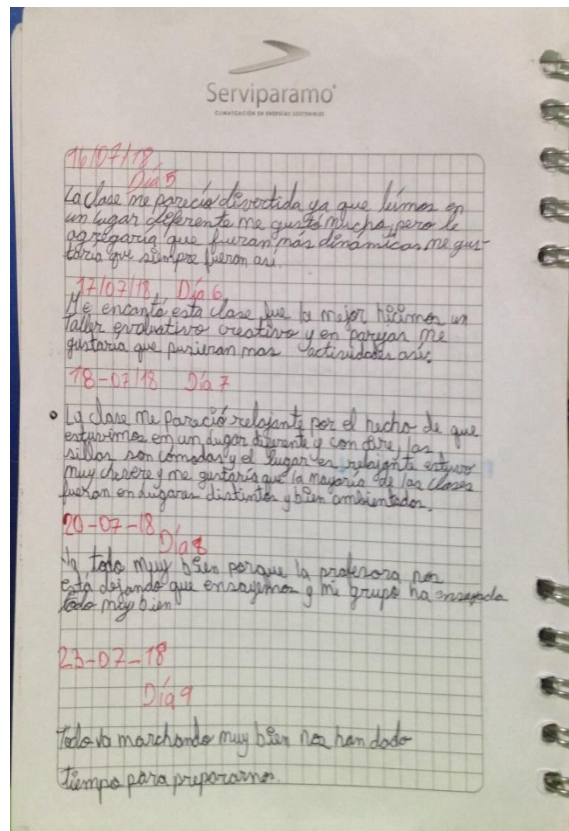 Serviparamo
CLIMATIZACIÓN EN ENERGÍAS SOSTENIBLES
16/07/18
Día 5
La clase me pareció divertida ya que leímos en
un lugar diferente me gustó mucho, pero le
agregaría que fueran más dinámicas me gus-
taría que siempre fueron así.
17/07/18 Día 6
Me encantó esta clase fue la mejor hicimos un
Taller evaluativo creativo y en parejas me
gustaría que pusieran mas actividades así.
18-07/18 Día 7
La clase me pareció relajante por el hecho de que
estuvimos en un lugar diferente y con aire, las
sillas son cómodas y el lugar es relajante estuvo
muy chevere y me gustaría que la mayoría de las clases
fueran en lugares distintos y bien ambientados.
20-07-18
Día 8
Va todo muy bien porque la profesora nos
está dejando que ensayemos y mi grupo ha ensayado
todo muy bien
23-07-18
Día 9
Todo va marchando muy bien nos han dado
tiempo para prepararnos.